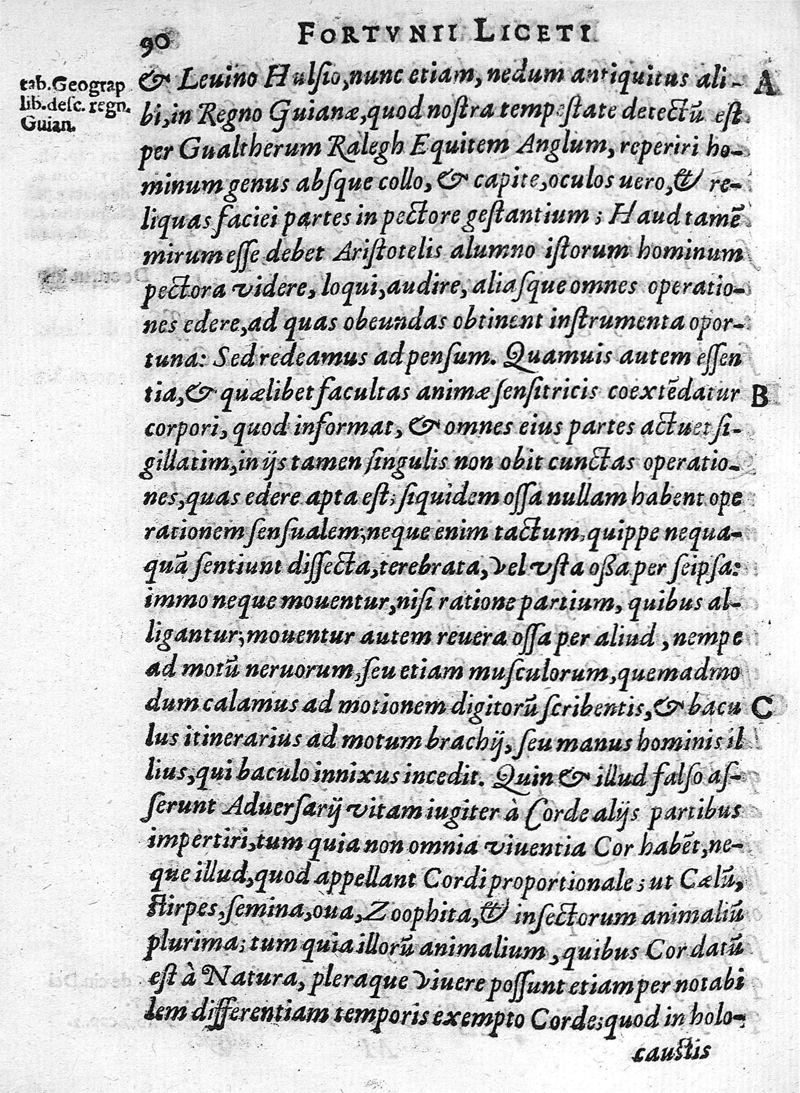 90 FORTVNII LICETI
tab. Geograp
lib. desc. regn.
Guian.
& Leuino Hulsio, nunc etiam, nedum antiquitus ali- A
bi, in Regno Guianæ, quod nostra tempestate detectũ est
per Gualtherum Ralegh Equitem Anglum, reperiri ho-
minum genus absque collo, & capite, oculos uero, & re-
liquas faciei partes in pectore gestantium; Haud tamẽ
mirum esse debet Aristotelis alumno istorum hominum
pectora videre, loqui, audire, aliasque omnes operatio-
nes edere, ad quas obeundas obtinent instrumenta opor-
tuna: Sed redeamus ad pensum. Quamuis autem essen
tia, & quælibet facultas animæ sensitricis coextẽdatur B
corpori, quod informat, & omnes eius partes actuet si-
gillatim, in ijs tamen singulis non obit cunctas operatio-
nes, quas edere apta est; siquidem ossa nullam habent ope
rationem sensualem; neque enim tactum, quippe nequa-
quã sentiunt dissecta, terebrata, vel vsta ossa per seipsa:
immo neque mouentur, nisi ratione partium, quibus al-
ligantur; mouentur autem reuera ossa per aliud, nempe
ad motũ neruorum, seu etiam musculorum, quemadmo
dum calamus ad motionem digitorũ scribentis, & bacu C
lus itinerarius ad motum brachij, seu manus hominis il
lius, qui baculo innixus incedit. Quin & illud falso as-
serunt Aduersarij vitam iugiter à Corde alijs partibus
impertiri, tum quia non omnia viuentia Cor habẽt, ne-
que illud, quod appellant Cordi proportionale; ut Cælũ,
stirpes, semina, oua, Zoophita, & insectorum animaliũ
plurima; tum quia illorũ animalium, quibus Cor datũ
est à Natura, pleraque viuere possunt etiam per notabi
lem differentiam temporis exempto Corde; quod in holo-
caustis